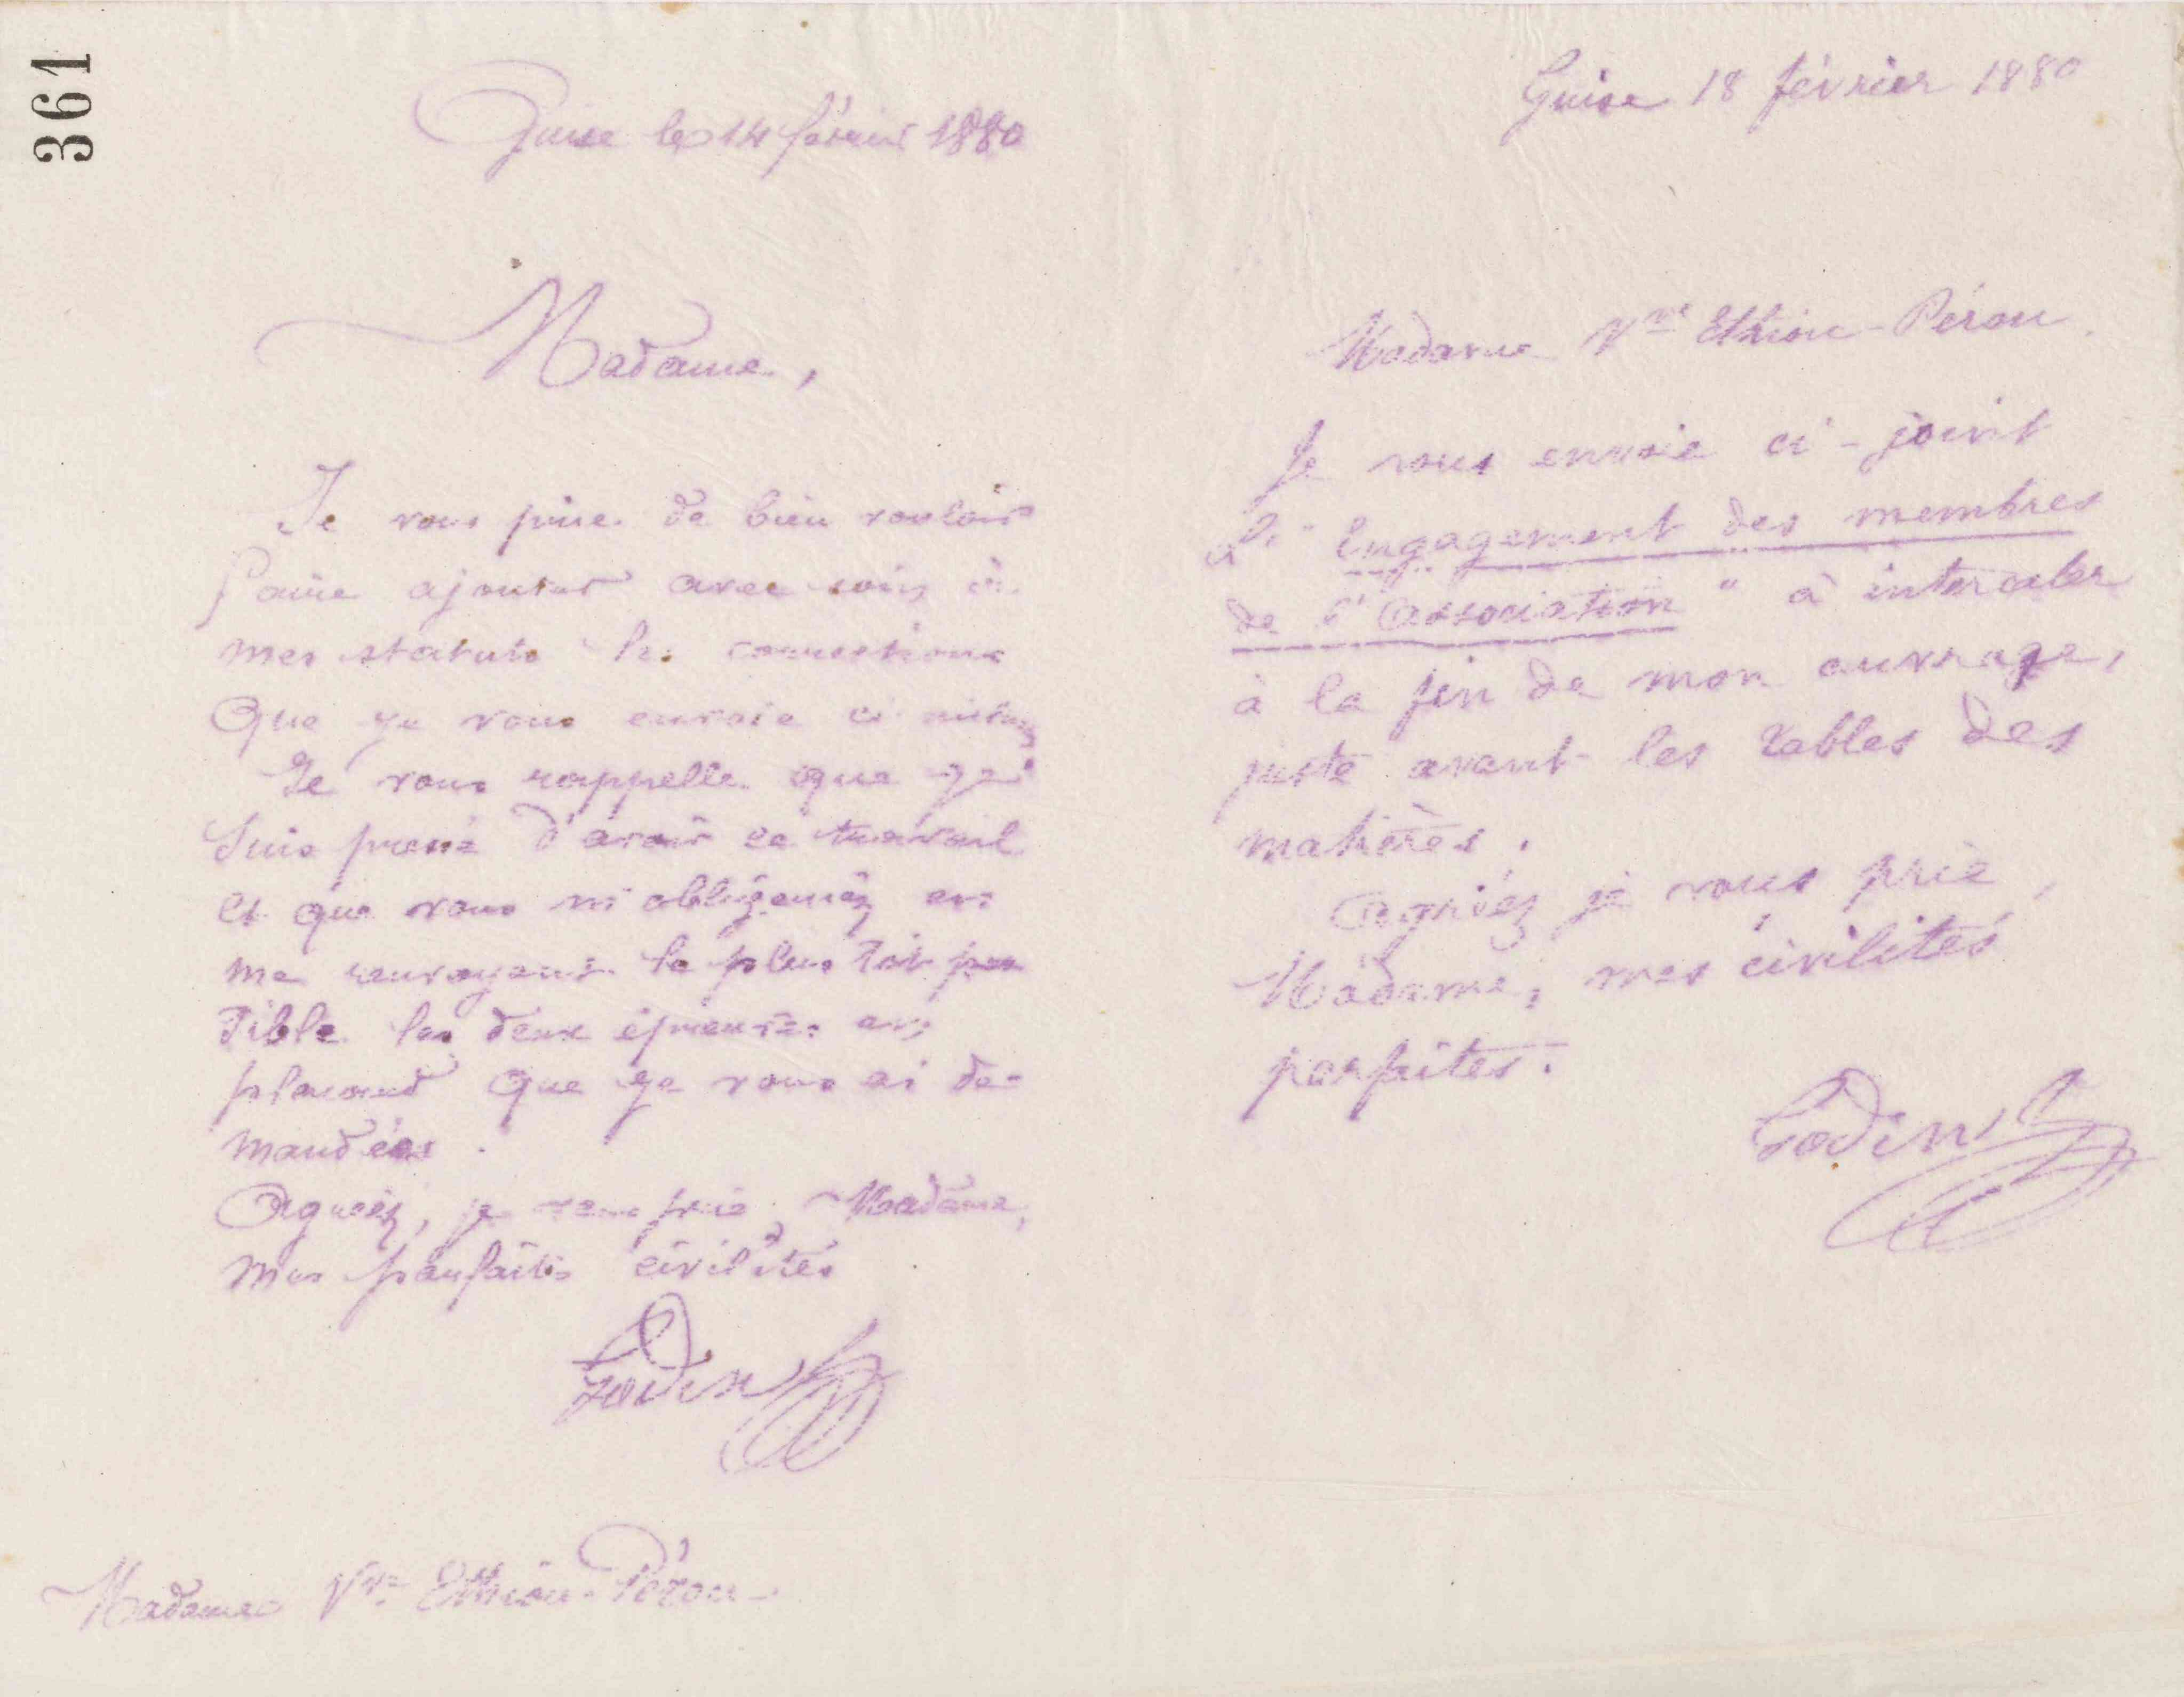 361
Guise le 14 février 1880
Madame,
Je vous prie de bien vouloir
faire ajouter avec soin à
mes statuts les corrections
que je vous envoie ci-inclus
Je vous rappelle que je
suis pressé d'avoir ce travail
et que vous m'obligeriez en
me renvoyant le plus tôt pos
sible les deux épreuves en
placard que je vous ai de-
mandées.
Agréez, je vous prie, Madame,
mes parfaites civilités
Godin
Madame Vve Ethiou-Pérou
Guise 18 février 1880
Madame Vve Ethiou-Pérou
Je vous envoie ci-joint
l'"Engagement des membres
de l'Association" à intercaler
à la fin de mon ouvrage,
juste avant les tables des
matières.
Agréez je vous prie,
Madame, mes civilités
parfaites.
Godin